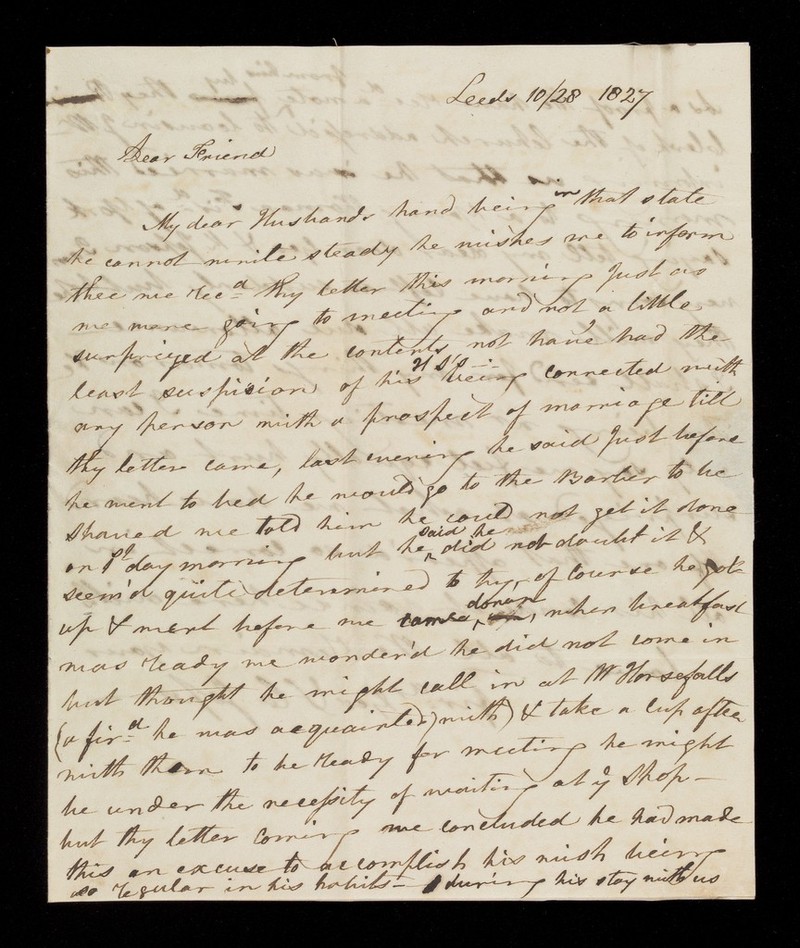 Leeds 10/28 1827
Dear Friend
My dear Husbands hand being in that state
he cannot write steady he wishes me to inform
thee we recd thy letter this morning Just as
we were going to meeting and not a little
surprized at the contents, not have had the
least suspicion of his H S's being connected with
any person with a prospect of marriage till
thy letter came, last evening he said Just before
he went to bed he would go to the Barber to be
shaved we told him he could not get it done
on 1st day morning but he said he did not doubt it &
seem'd quite determined to try, of course he got
up & went before we came down, when breakfast
was ready we wonder'd he did not come in
but thought he might call in at W Horsefalls
(a fird he was acquainted with) & take a Cup after
with them to be ready for meeting he might
be under the necessity of waiting at ye Shop –
but thy letter coming we concluded he had made
this an excuse to accomplish his wish being
so regular in his habits – during his stay with us